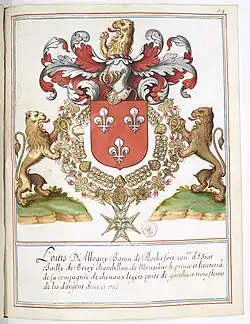 64
Louis De Allegre Baron de Rochefort con.er d'Estat
Bailly de Berry Chambellan de Monsieur le prince et lieutenã
de sa compagnie de chevaux legers porte de gueules a trois fleurs
de lis d'argent deux et une